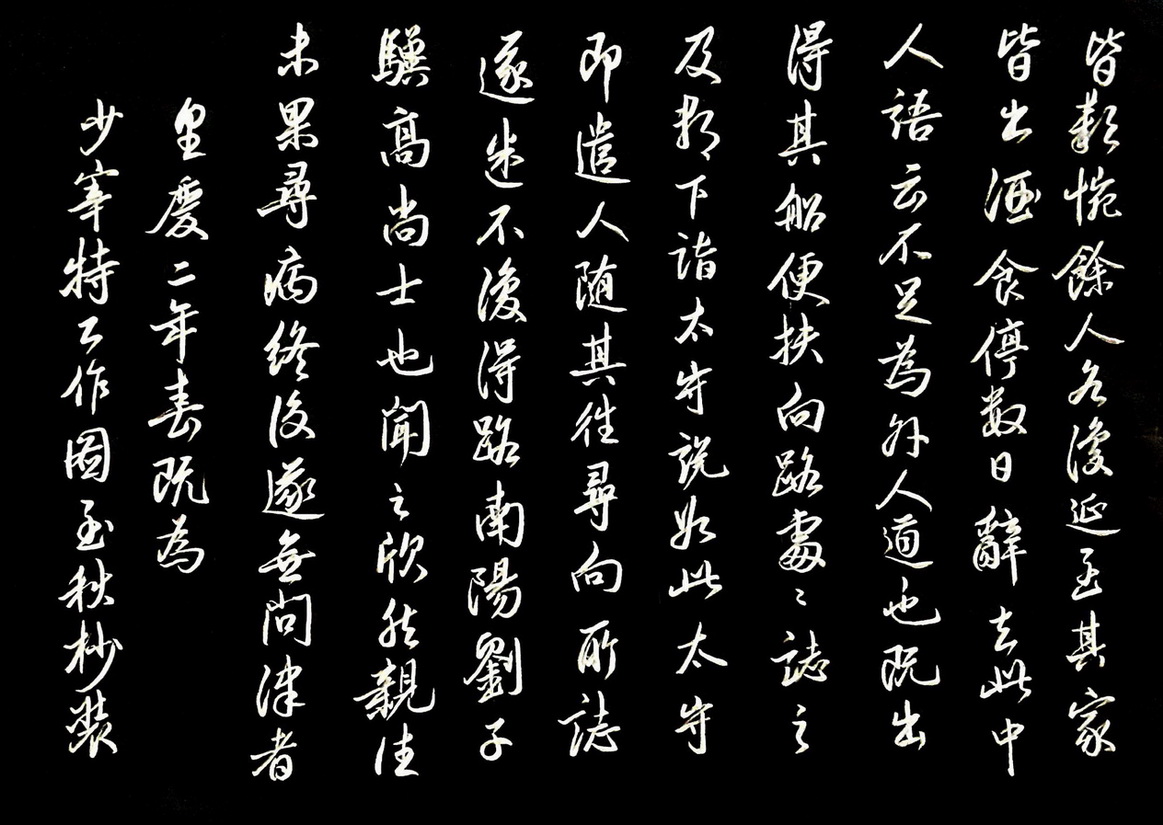 皆歎惋餘人各復延至其家
皆出酒食停數日辭去此中
人語云不足為外人道也既出
得其船便扶向路處〻誌之
及郡下詣太守說如此太守
即遣人隨其往尋向所誌
遂迷不復得路南陽劉子
驥高尚士也聞之欣然親往
未果尋病終後遂無問津者
皇慶二年春既為
少宰特工作圖至秋杪裝